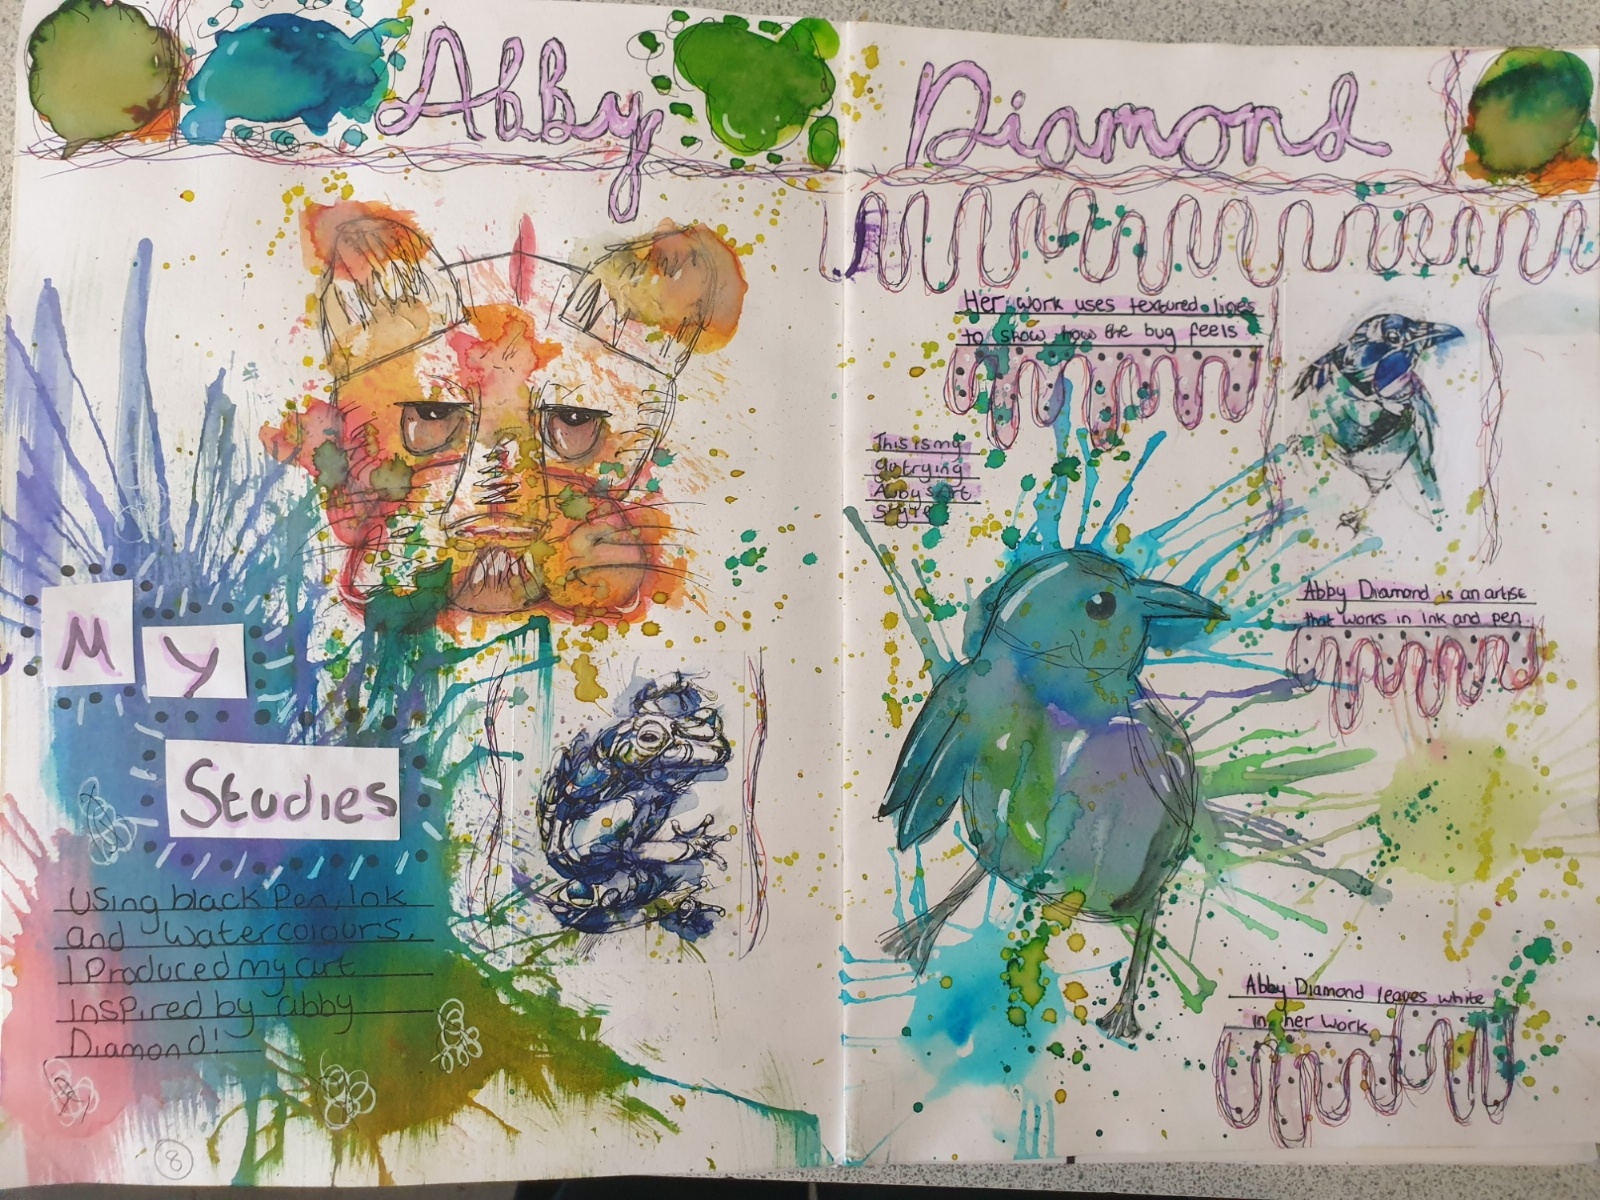 Abby Diamond
Her work uses textured lines
to show how the bug feels
This is my
go trying
Abbys art
style
Abby Diamond is an artist
that works in Ink and pen.
My
Studies
Using black Pen, Ink
and watercolours,
I Produced my art
Inspired by abby
Diamond!
Abby Diamond leaves white
in her work
8